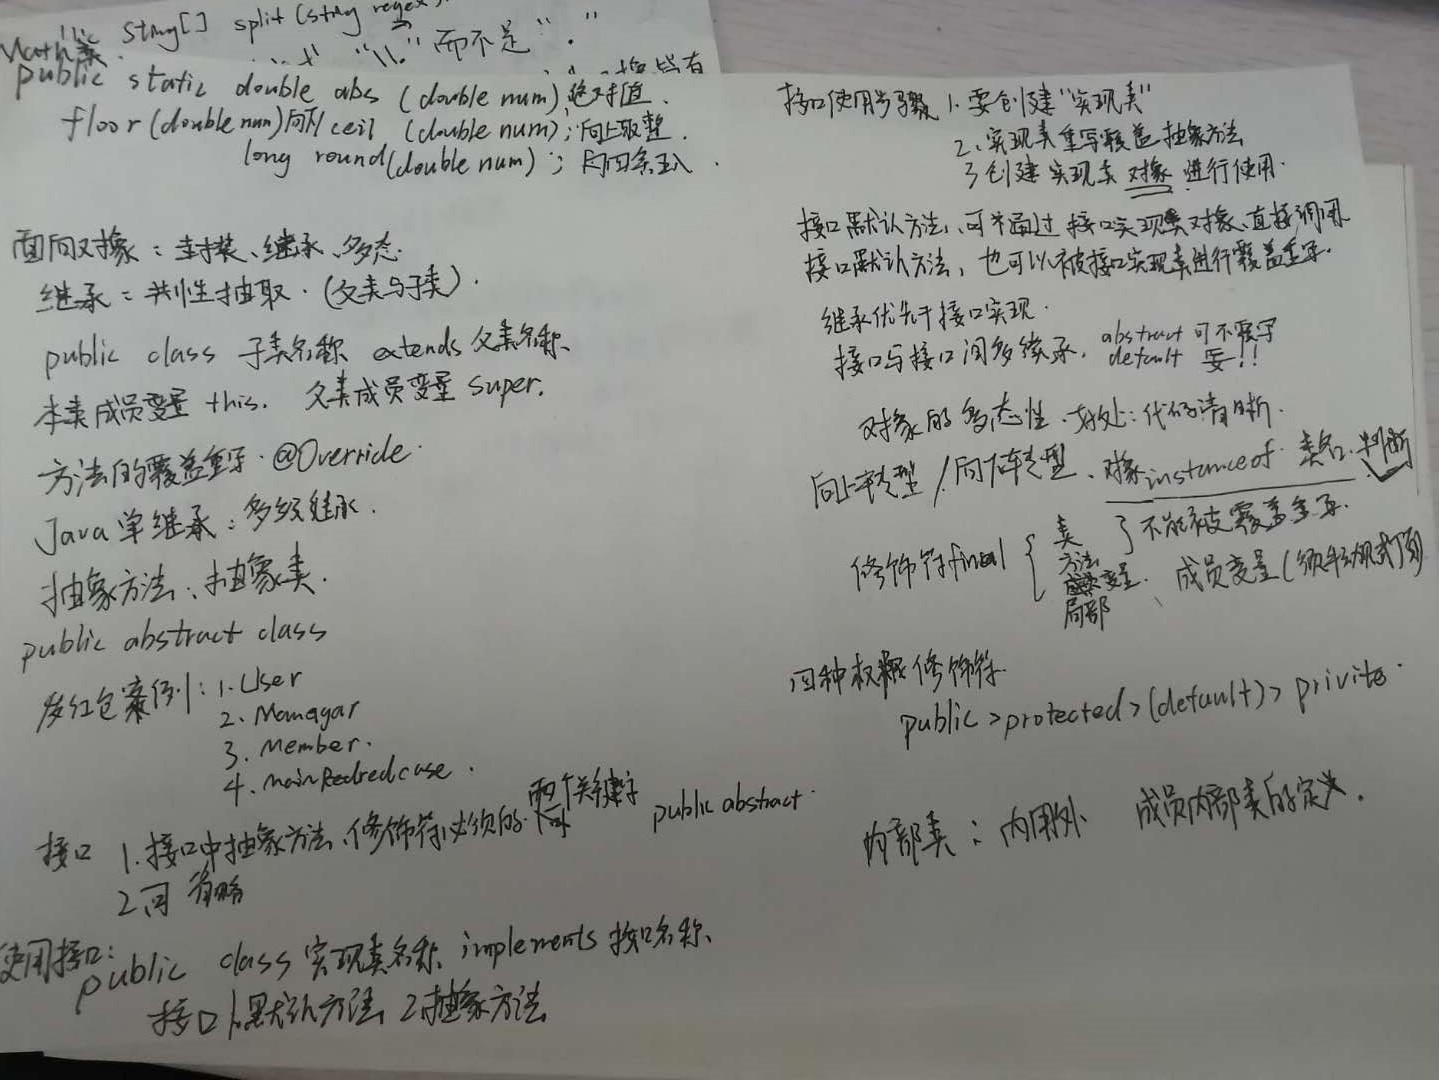 String[] split (string regex)
Math类. "\\." 而不是 "."
public static double abs (double num) 绝对值.
floor (double num) 向下 ceil (double num); 向上取整.
long round (double num); 四舍五入.
面向对象: 封装、继承、多态.
继承: 共性抽取. (父类与子类).
public class 子类名称 extends 父类名称.
本类成员变量 this. 父类成员变量 super.
方法的覆盖重写. @Override.
Java 单继承; 多级继承.
抽象方法、抽象类.
public abstract class
发红包案例: 1. User
2. Manager
3. Member.
4. mainRedredcase.
接口 1. 接口中抽象方法, 修饰符必须的两个关键字 public abstract.
2. 可省略
使用接口:
public class 实现类名称 implements 接口名称.
接口 1.默认方法 2.抽象方法
接口使用步骤 1. 要创建"实现类"
2. 实现类重写覆盖抽象方法
3 创建实现类对象 进行使用.
接口默认方法, 可通过接口实现类对象, 直接调用.
接口默认方法, 也可以被接口实现类进行覆盖重写.
继承优先于接口实现.
接口与接口间多继承. abstract 可不覆写
default 要!!
对象的多态性. 好处: 代码清晰.
向上转型 / 向下转型. 对象 instanceof 类名. 判断
修饰符 final { 类
方法 } 不能被覆盖重写.
局部 、成员变量
四种权限修饰符.
public > protected > (default) > privite.
内部类: 内用外 成员内部类的定义.